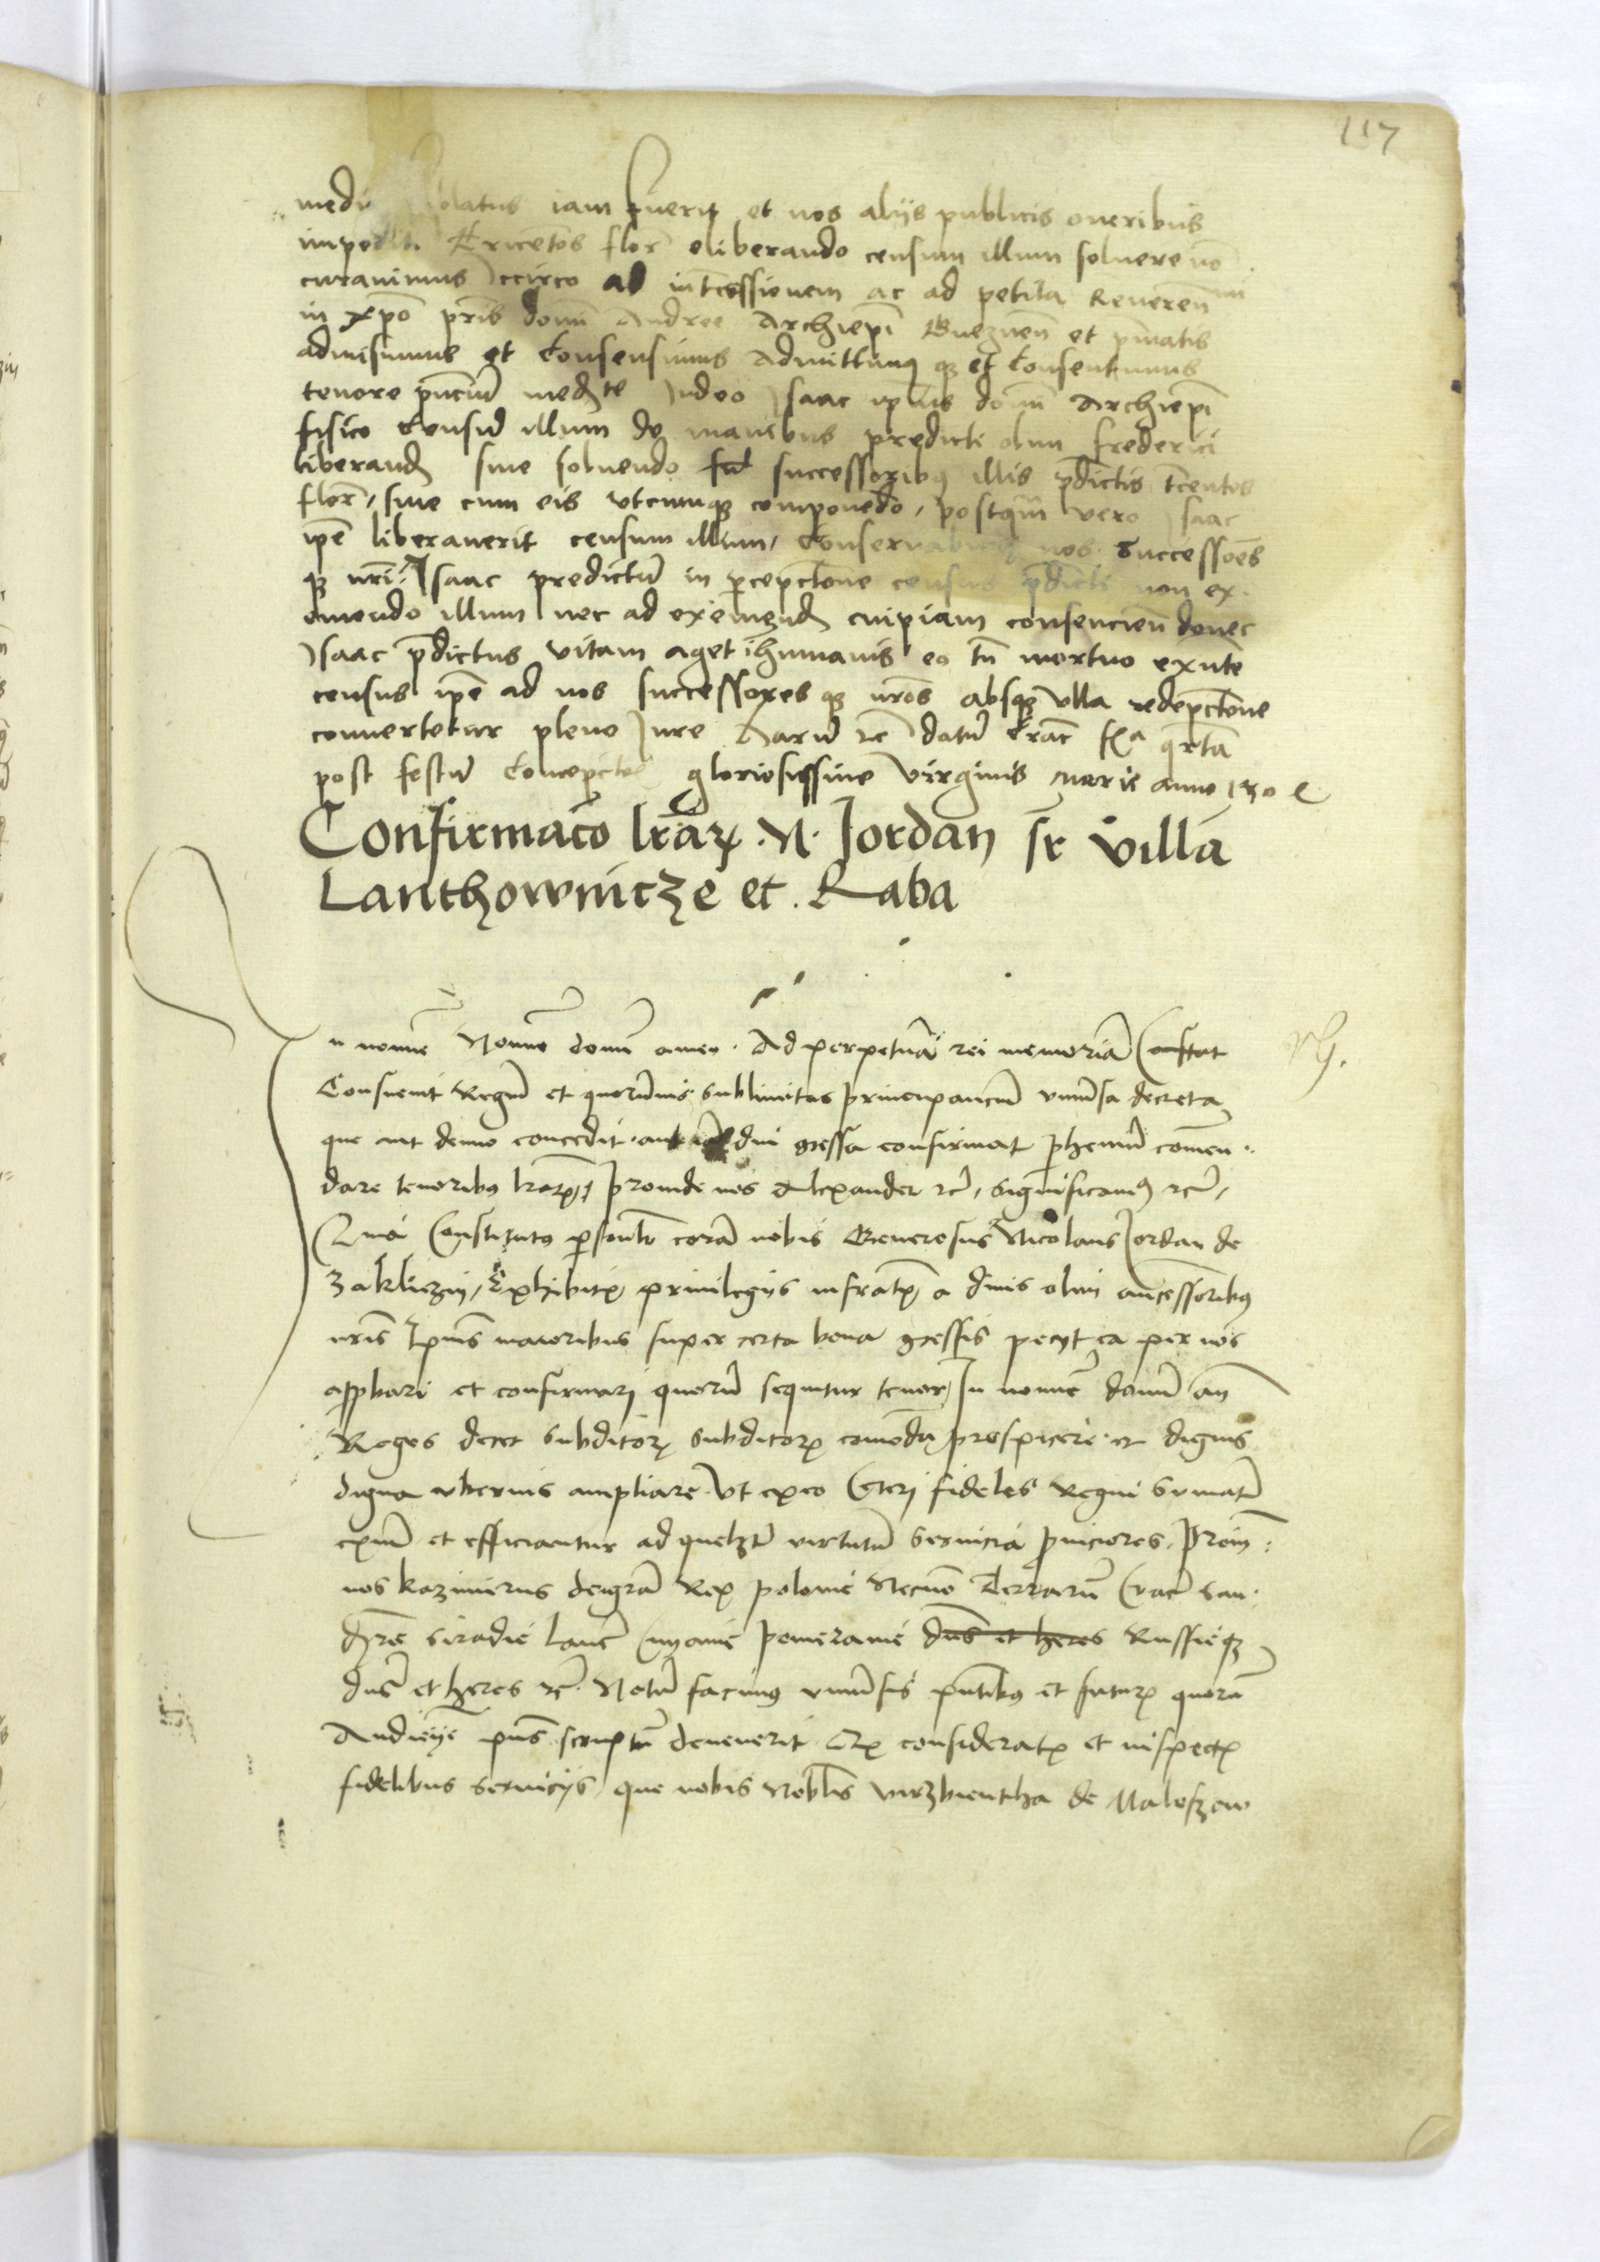 117
iam fuerit et nos alijs publicis oneribus
Tricetos flor eliberando censum illum soluere no
curauimus Iccirco ad intcessionem ac ad petita Reueren
in xpo pris domi Andree Archiepi Gneznen et pmatis
admisimus et Consensimus Admittimus qz et Consentimus
tenore pncium medte Iudeo Isaac ipius domi Archiepi
fisico Censum illum de manibus predicti olim frederici
liberand siue soluendo successoribus illis pdictis tcentos
flor, siue cum eis vtcumqz componedo, postqm vero Isaac
ipe liberauerit censum illum, Conseruabimus nos Successoes
qz nri Isaac predictum in pcepctione census pdicti non ex
omendo illum nec ad exemend cuipiam consencien donec
Isaac pdictus vitam aget i humanis eo tn mortuo exnte
census ipe ad nos successores qz nros absqz vlla redepctione
conuertetur pleno Iure Harum rc datum Crac fia qrta
post festum Concepcois gloriosissime virginis marie anno 1504
Confirmaco lrarz N. Jordan sr villa
Lanthownicze et Raba
n nomie domi amen. Ad perpetuam rei memoriam
Consueuit Regum et quorumuis sublimitas principancium vniuersa decreta
que aut denuo concedit confirmat phenni comen
dare tenoribus lrarz, Proinde nos Alexander rc, Significamus rc,
Quia Constitutus psonlr coram nobis Generosus Nicolaus Jordan de
Zakliczin, Exhibitis priuilegijs infratis a diuis olim ancessoribus
nris maioribus super certa bona gcessis pecyt ea per nos
appbari et confirmari quorum sequitur tenor, In nomie domi am
Reges decet subditorz subditorz comoda prospicere et dignis
digna vberius ampliare Vt ex eo Ceteri fideles Regni
et efficiantur ad quelzt virtutum seruicia pniciores, Proin
nos kazimirus dei gra Rex polonie Necno Terrarum Crac San
dre Siradie lanc Cuyauie pomeranie dns et heres Russieqz
dns et heres rc Notum facimus vniuersis pntibus et futuris quorum
Audiencie pns scriptum deuenerit Qr consideratis et inspectis
fidelibus seruicijs, que nobis Noblis virzbientha de Maloszow